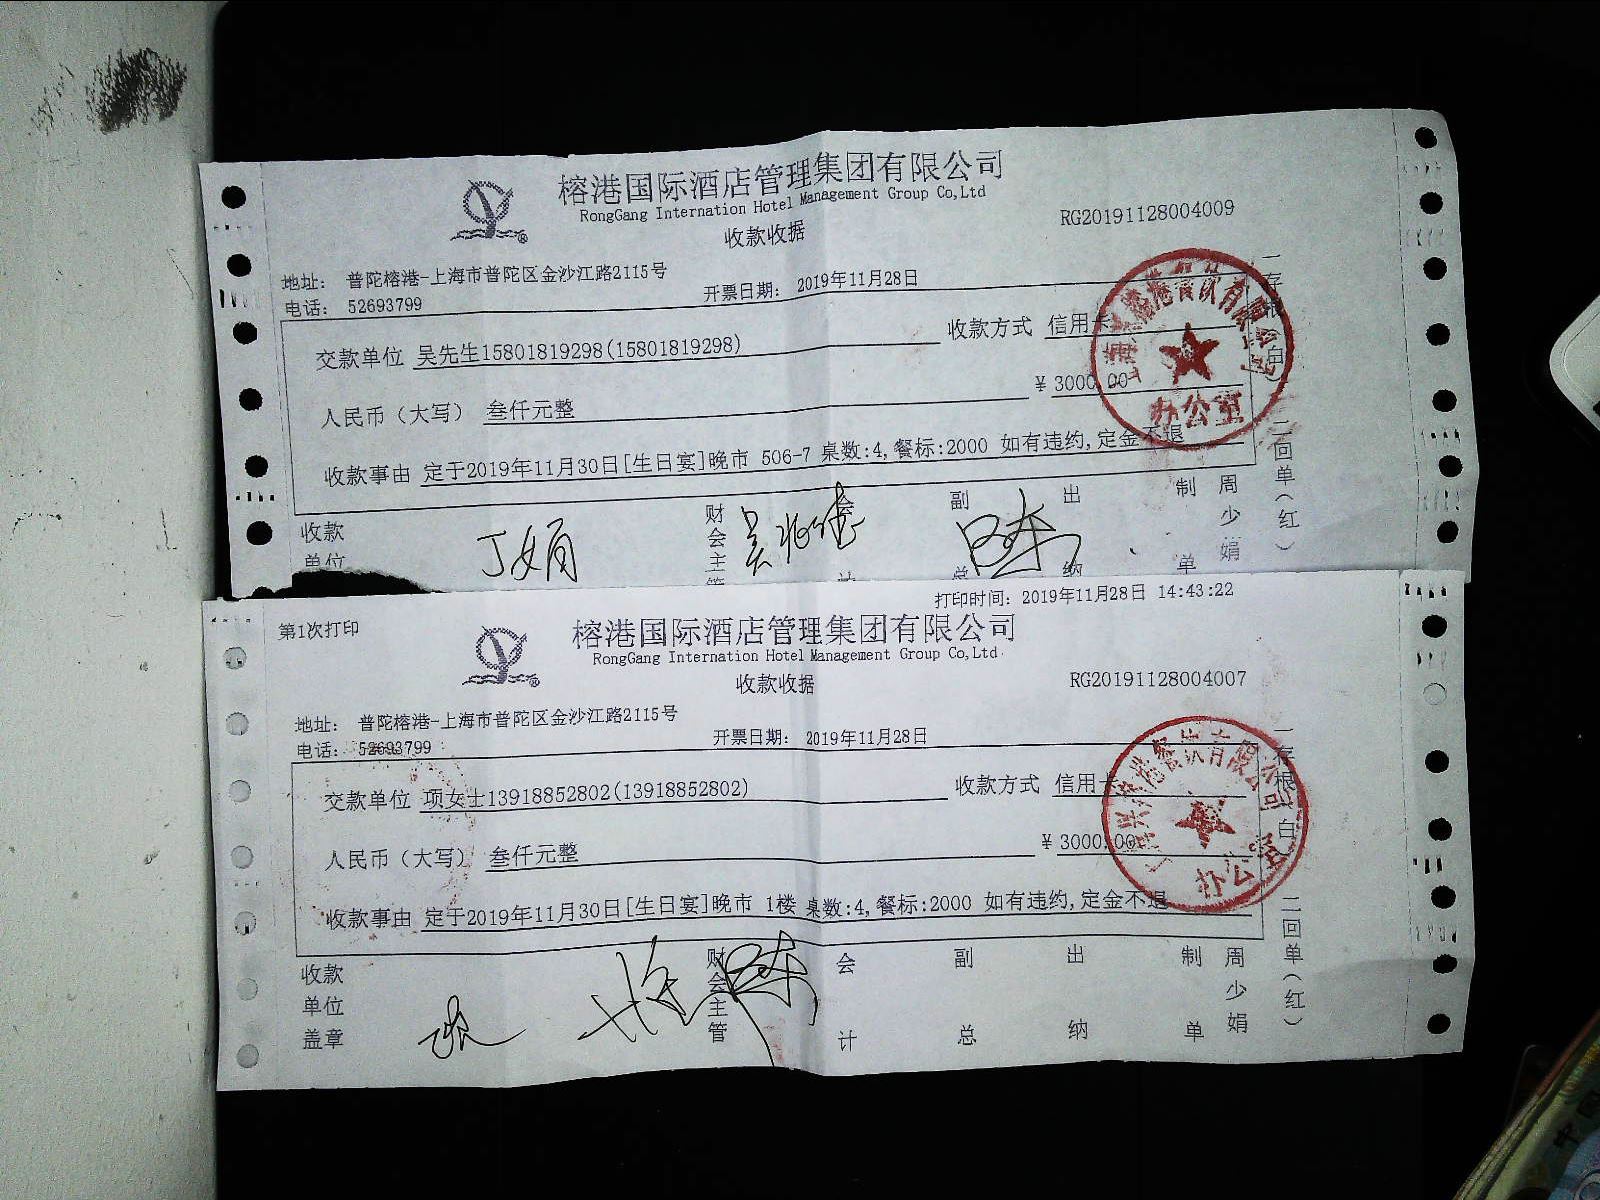 榕港国际酒店管理集团有限公司
RongGang Internation Hotel Management Group Co,Ltd
收款收据
RG20191128004009
地址： 普陀榕港-上海市普陀区金沙江路2115号
电话： 52693799
开票日期： 2019年11月28日
交款单位 吴先生15801819298(15801819298)
收款方式 信用卡
人民币（大写） 叁仟元整
¥ 3000.00
收款事由 定于2019年11月30日[生日宴]晚市 506-7 桌数:4,餐标:2000 如有违约,定金不退
收款
单位
财会主管
会计
副总
出纳
制单
周少娟
一存根（白）
二回单（红）
办公室
打印时间： 2019年11月28日 14:43:22
第1次打印
榕港国际酒店管理集团有限公司
RongGang Internation Hotel Management Group Co,Ltd.
收款收据
RG20191128004007
地址： 普陀榕港-上海市普陀区金沙江路2115号
电话： 52693799
开票日期： 2019年11月28日
交款单位 项女士13918852802(13918852802)
收款方式 信用卡
人民币（大写） 叁仟元整
¥ 3000.00
收款事由 定于2019年11月30日[生日宴]晚市 1楼 桌数:4,餐标:2000 如有违约,定金不退
收款
单位
盖章
财会主管
会计
副总
出纳
制单
周少娟
一存根（白）
二回单（红）
办公室